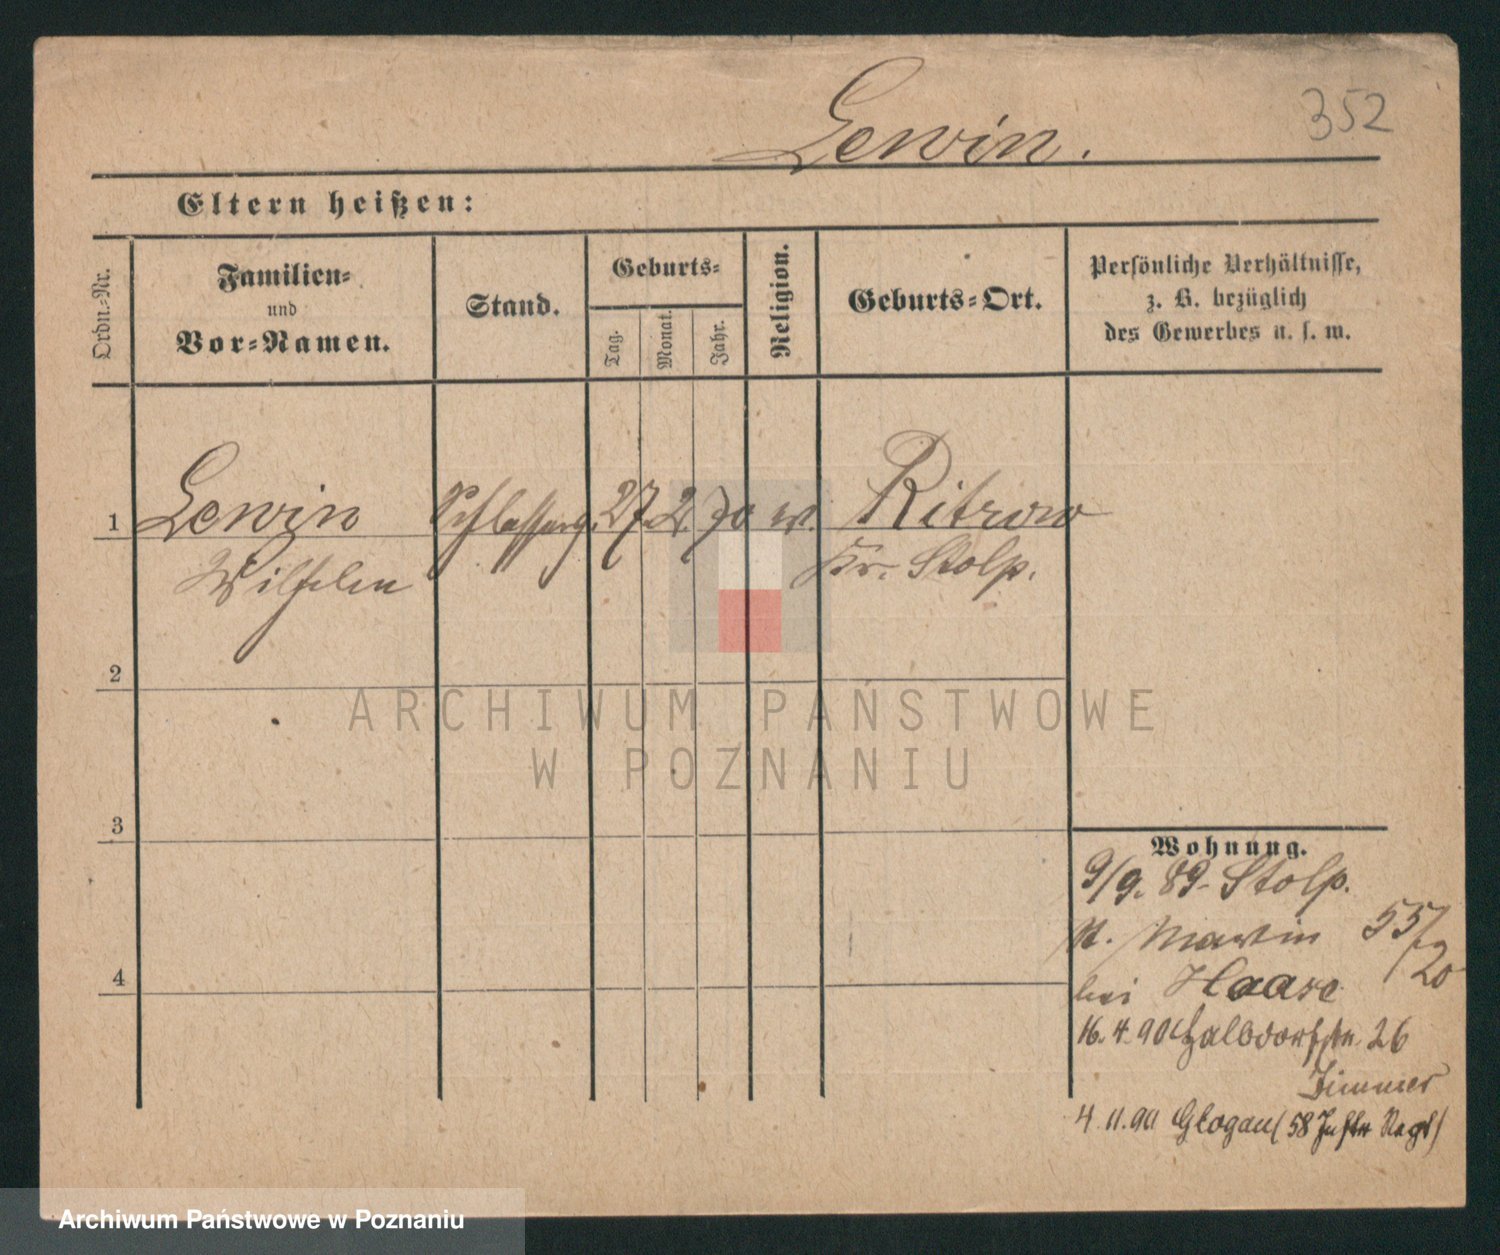 352
Lewin.
Eltern heißen:
Ordn.-Nr.
Familien-
und
Vor-Namen.
Stand.
Geburts-
Tag.
Monat.
Jahr.
Religion.
Geburts-Ort.
Persönliche Verhältnisse,
z. B. bezüglich
des Gewerbes u. s. w.
1 Lewin 27. 2. 70 Ritrow
Wilhelm Kr. Stolp.
2
ARCHIWUM PAŃSTWOWE
W POZNANIU
3
Wohnung.
9/9. 89. Stolp.
St. Martin 55/20
bei Haase
4
16. 4. 90 Halbdorfstr. 26
Zimmer
4. 11. 90 Glogau (58 Inftr Regt)
Archiwum Państwowe w Poznaniu